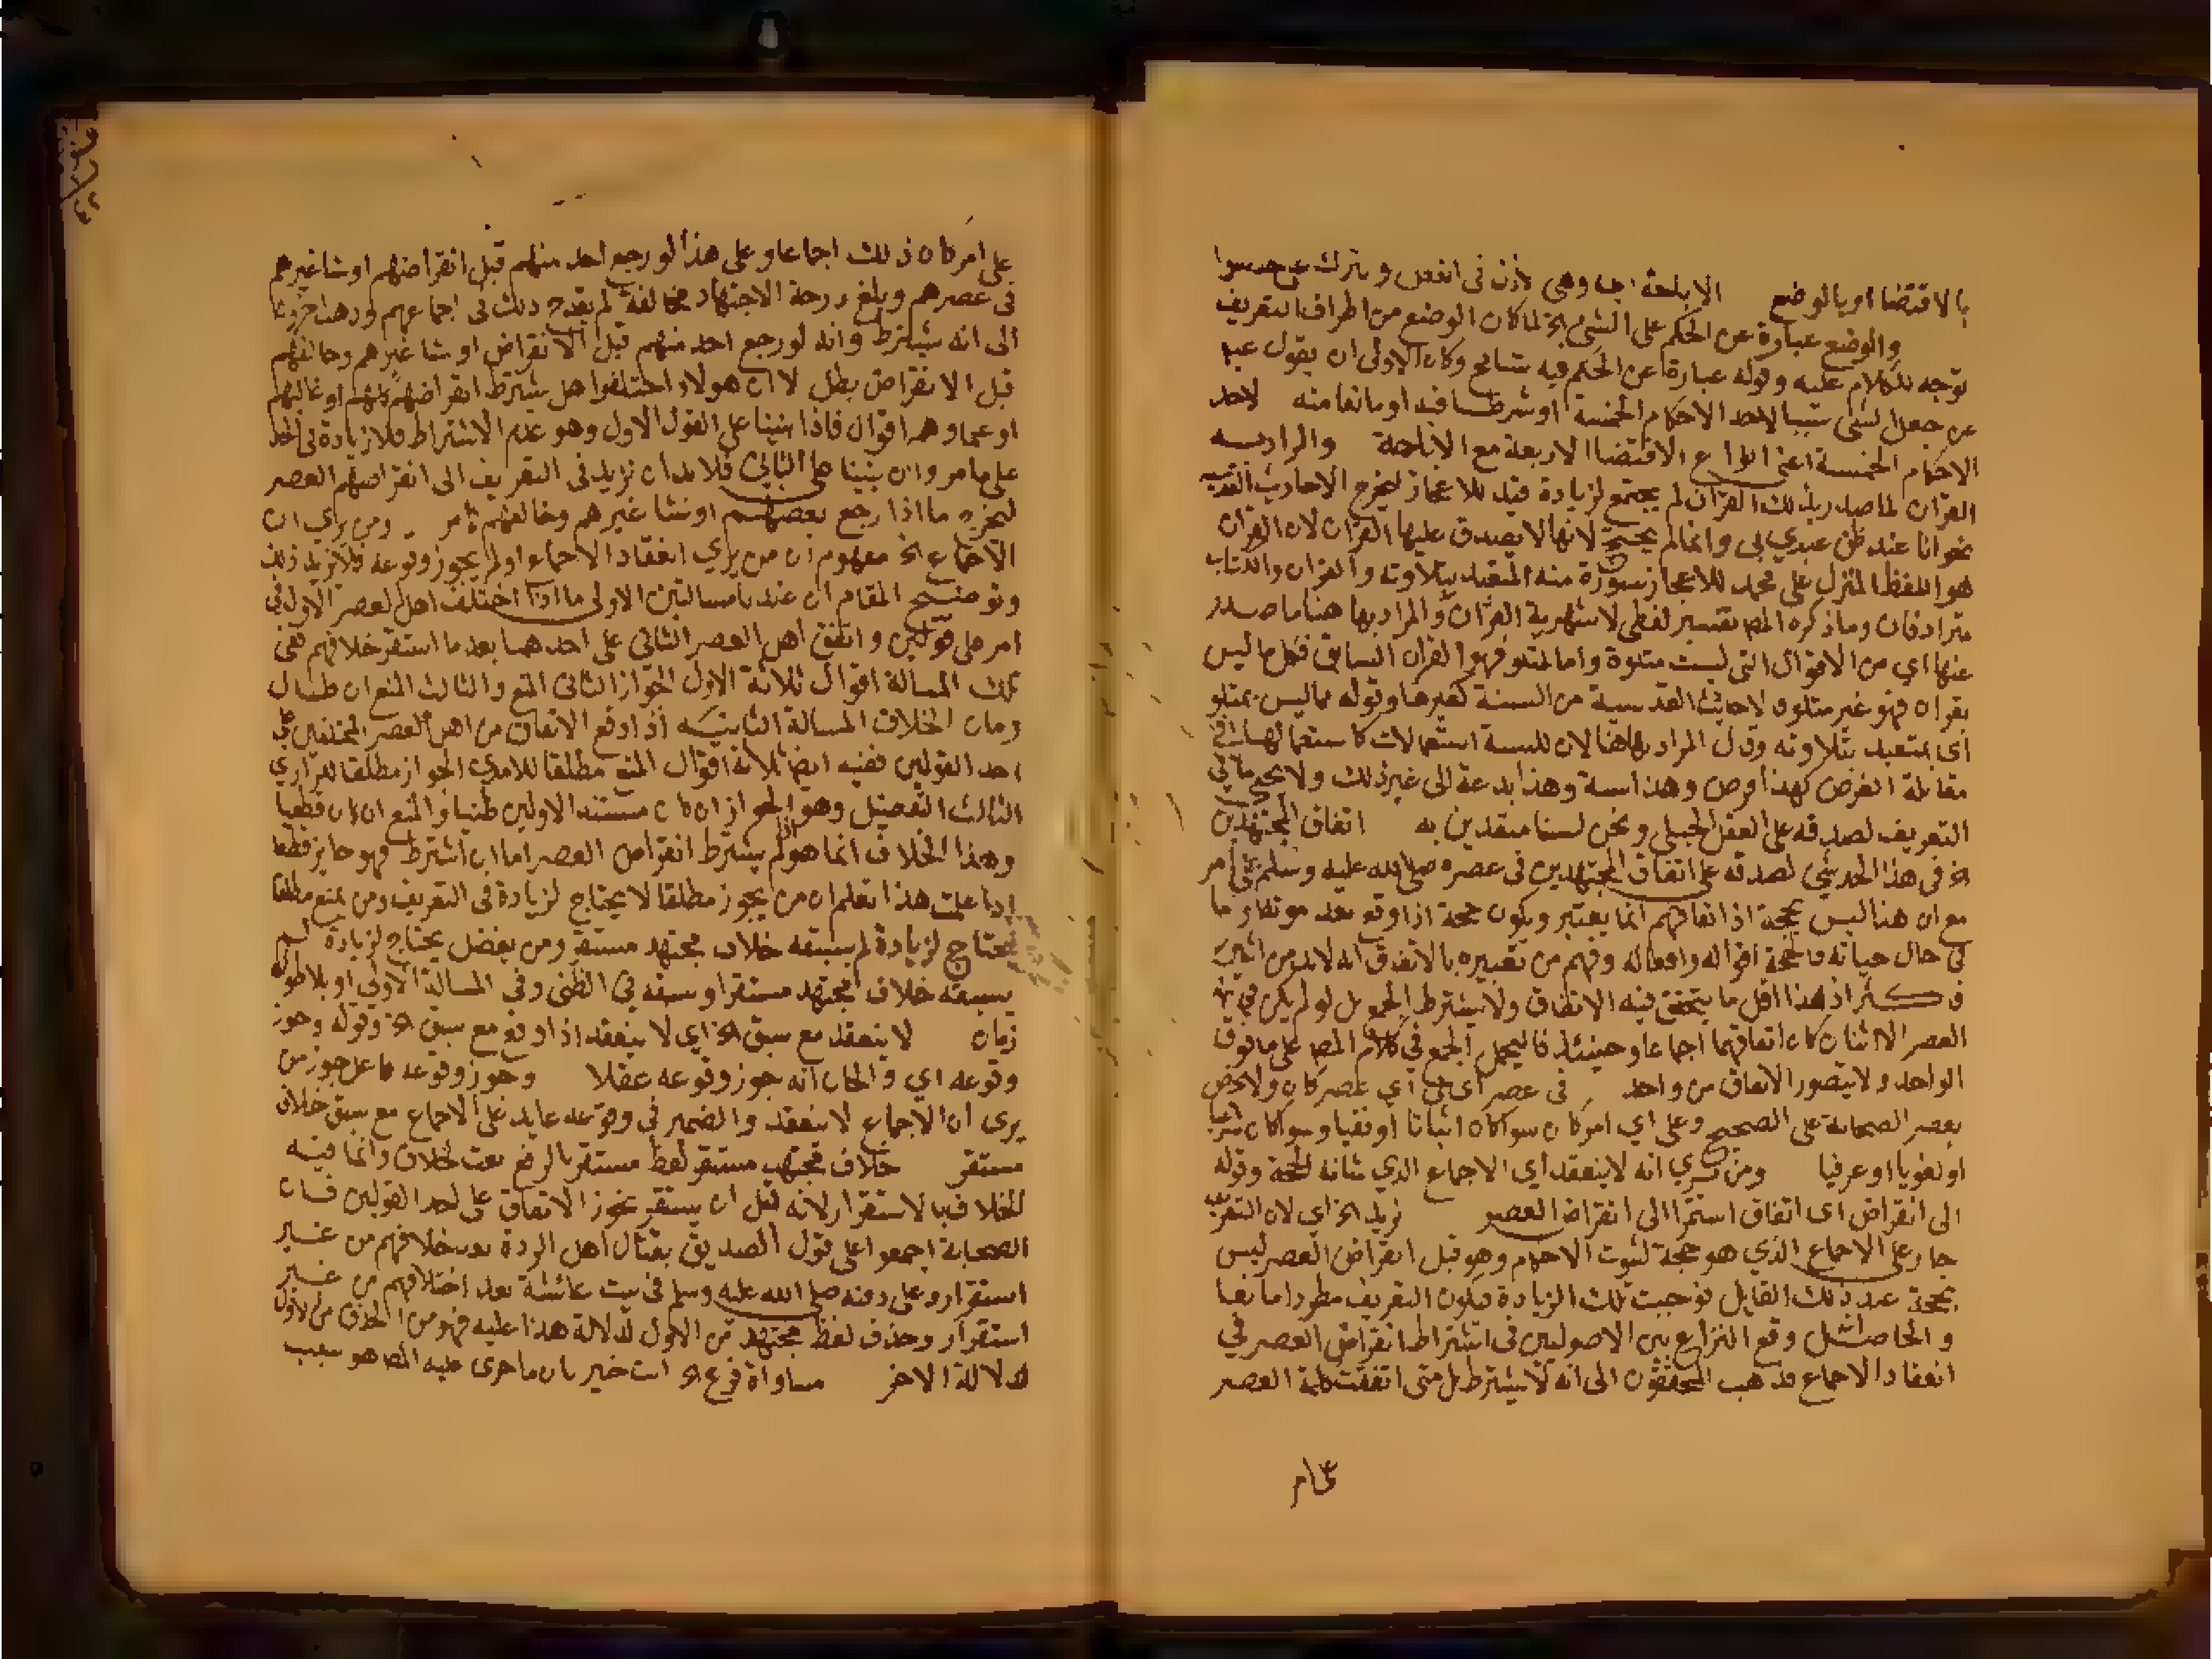 بالاقتضا او بالوضع الاباحة اجا وهي لاذن في الفعل وتترك على حد سوا
والوضع عبارة عن الحكم على الشي الخ لما كان الوضع من اطراف التعريف
توجه للكلام عليه وقوله عبارة عن الحكم فيه تسامح وكان الاولى ان يقول عبا
عن جعل الشي سببا لاحد الاحكام الخمسة او شرطا فيه او مانعا منه لاحد
الاحكام الخمسة اعني انواع الاقتضا الاربعة مع الاباحة والمراد به
القران لما صدر بذلك القران لم يحتج لزيادة قيد للاعجاز ليخرج الاحاديث القدسية
نحو انا عند ظن عبدي بي وانما لم يحتج لانها لا يصدق عليها القران لان القران
هو اللفظ المنزل على محمد للاعجاز بسورة منه المتعبد بتلاوته والقران والكتاب
مترادفان وما ذكره المص تفسير لفظي لاشهرية القران والمراد بها هنا ما صدر
عنها اي من الاقوال التي ليست متلوة واما المتلو فهو القران السابق فكل ما ليس
بقران فهو غير متلو والاحاديث القدسية من السنة كغيرها وقوله مما ليس بمتلو
اي بمتعبد بتلاوته وقال المراد بها هنا لان للسنة استعمالات كاستعمالها في
مقابلة الفرض كهذا فرض وهذا سنة وهذا بدعة الى غير ذلك ولا يخفى ما في
التعريف لصدقه على العقل الجبلي ونحن لسنا متعبدين به اتفاق المجتهدين
الخ في هذا الحد شي لصدقه على اتفاق المجتهدين في عصره صلى الله عليه وسلم على امر
مع ان هنا ليس بحجة اذ اتفاقهم انما يعتبر ويكون حجة اذا وقع بعد موته واما
في حال حياته فالحجة اقواله وافعاله وفهم من تعبيره بالاتفاق انه لابد من اثنين
فاكثر اذ هذا اقل ما يتحقق فيه الاتفاق ولا يشترط الجمع بل لو لم يكن في
العصر الا اثنان كان اتفاقهما اجماعا وحينئذ فاليحمل الجمع في كلام المص على ما فوق
الواحد ولا يتصور الاتفاق من واحد في عصر اي في اي عصر كان ولا يختص
بعصر الصحابة على الصحيح وعلى اي امر كان سوا كان اثباتا او نفيا وسوا كان شرعيا
او لغويا او عرفيا ومن يري انه لا ينعقد اي الاجماع الذي شانه الحجة وقوله
الى انقراض اي اتفاق استمر الى انقراض العصر نزيد الخ اي لان التعريف
جار على الاجماع الذي هو حجة لثبوت الاحكام وهو قبل انقراض العصر ليس
بحجة عند ذلك القايل فوجبت تلك الزيادة فيكون التعريف مطردا مانعا
والحاصل وقع النزاع بين الاصوليين في اشتراط انقراض العصر في
انعقاد الاجماع فذهب المحققون الى انه لا يشترط بل متى اتفقت كلمة العصر
على امر كان ذلك اجماعا وعلى هذا لو رجع احد منهم قبل انقراضهم او نشا غيرهم
في عصرهم وبلغ درجة الاجتهاد مخالفة لم يقدح ذلك في اجماعهم وذهب اخرون
الى انه يشترط وانه لو رجع احد منهم قبل الانقراض او نشا غيرهم وخالفهم
قبل الانقراض بطل الا ان هولاء اختلفوا هل يشترط انقراضهم كلهم او غالبهم
او علماوهم اقوال فاذا بنينا على القول الاول وهو عدم الاشتراط فلا زيادة في الحد
على ما مر وان بنينا على الثاني فلا بد ان نزيد في التعريف الى انقراضهم العصر
ليخرج ما اذا رجع بعضهم او نشا غيرهم وخالفهم كما مر ومن يري ان
الاجماع الخ مفهوم ان من يري انعقاد الاجماع او لم يجوز وقوعه فلا نزيد ذلك
وتوضيح المقام ان عندنا مسالتين الاولى ما اذا اختلف اهل العصر الاول في
امر على قولين واتفق اهل العصر الثاني على احدهما بعد ما استقر خلافهم ففي
تلك المسالة اقوال ثلاثة الاول الجواز الثاني المنع والثالث المنع ان طال
زمان الخلاف المسالة الثانية اذا وقع الاتفاق من اهل العصر المختلفين على
احد القولين ففيه ايضا ثلاثة اقوال المنع مطلقا للامدي الجواز مطلقا للرازي
الثالث التفصيل وهو الجواز ان كان مستند الاولين ظنيا والمنع ان كان قطعيا
وهذا الخلاف انما هو ان لم يشترط انقراض العصر اما ان اشترط فهو جايز قطعا
اذا علمت هذا تعلم ان من يجوز مطلقا لا يحتاج لزيادة في التعريف ومن يمنع مطلقا
يحتاج لزيادة لم يسبقه خلاف مجتهد مستقر ومن يفصل يحتاج لزيادة لم
يسبقه خلاف مجتهد مستقر او سبقه في الظني وفي المسالة الاولى او بلا طول
زمان لا ينعقد مع سبق الخ اي لا ينعقد اذا وقع مع سبق الخ وقوله وجوز
وقوعه اي والحال انه جوز وقوعه عقلا وجوز وقوعه فاعل جوز من
يرى ان الاجماع لا ينعقد والضمير في وقوعه عايد على الاجماع مع سبق خلاف
مستقر خلاف مجتهد مستقر لفظ مستقر بالرفع نعت لخلاف وانما قيد
الخلاف بالاستقرار لانه قبل ان يستقر يجوز الاتفاق على احد القولين فان
الصحابة اجمعوا على قول الصديق بقتال اهل الردة بعد خلافهم من غير
استقرار وعلى دفنه صلى الله عليه وسلم في بيت عائشة بعد اختلافهم من غير
استقرار وحذف لفظ مجتهد من الاول لدلالة هذا عليه فهو من الحذف من الاول
لدلالة الاخر مساواة فرع الخ انت خبير بان ما جرى عليه المص هو سبب